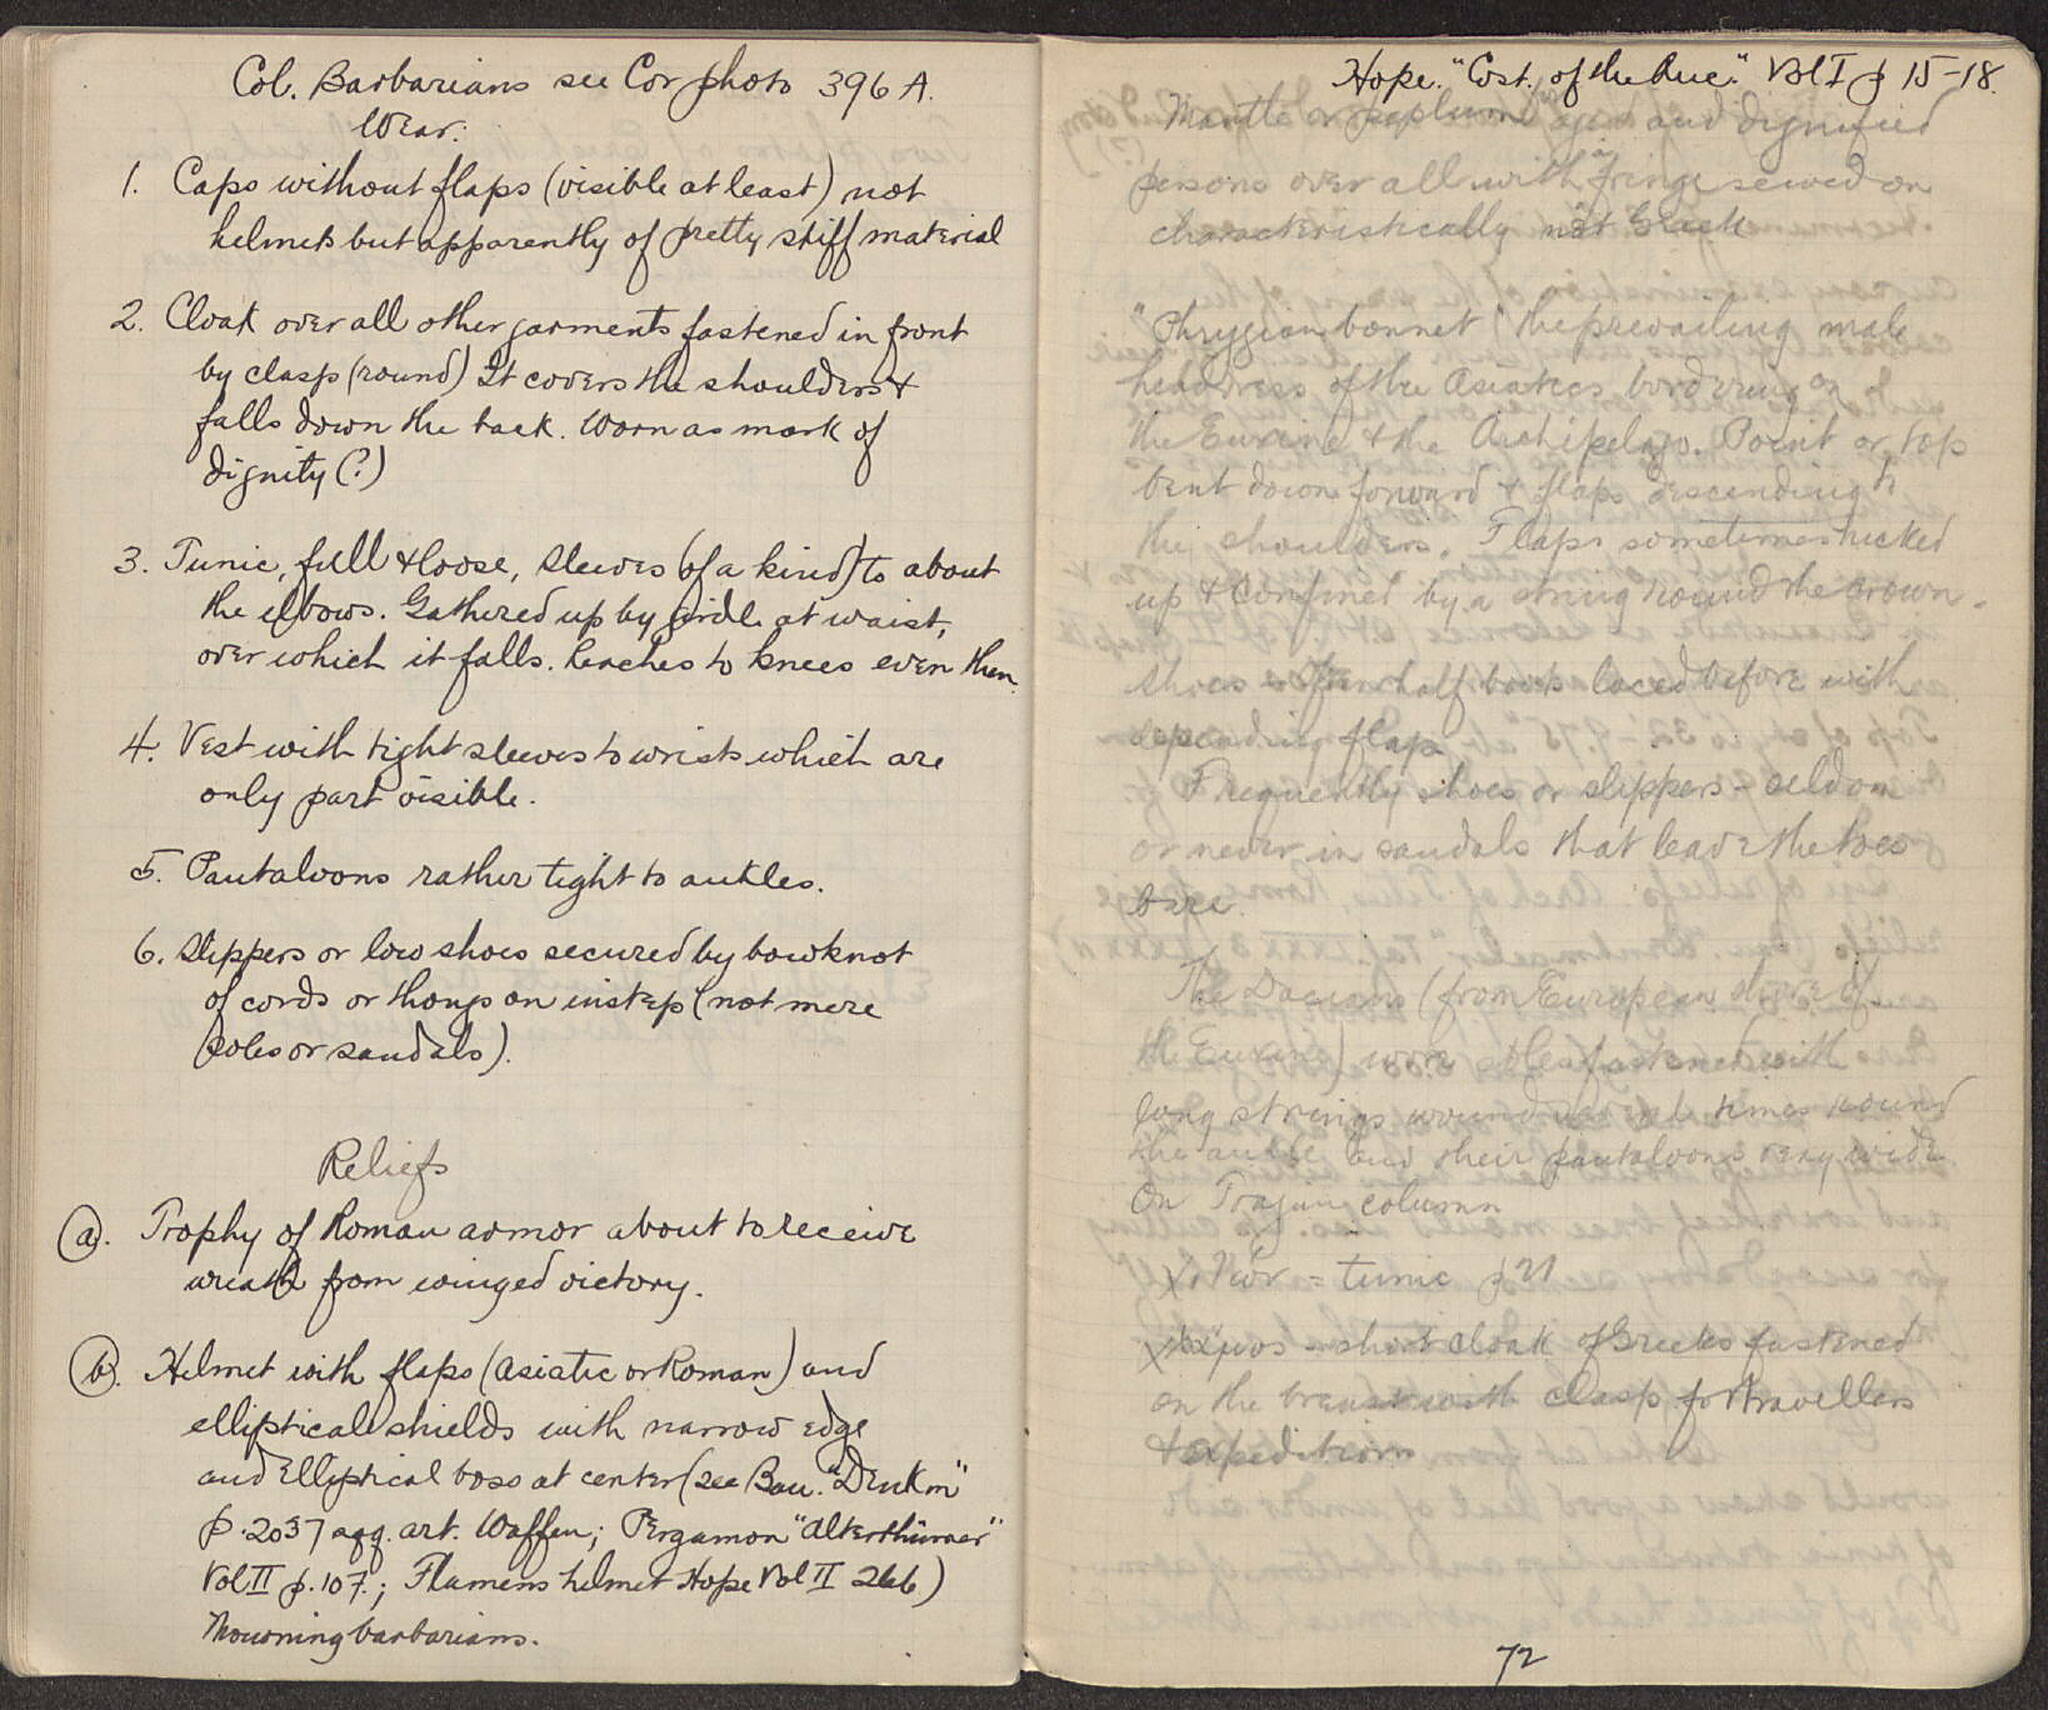 Col. Barbarians see Cor photo 396 A.
Wear:
1. Caps without flaps (visible at least) not
helmets but apparently of pretty stiff material
2. Cloak over all other garments fastened in front
by clasp (round) It covers the shoulders &
falls down the back. Worn as mark of
dignity (?)
3. Tunic, full & loose, sleeves (of a kind) to about
the elbows. Gathered up by girdle at waist,
over which it falls. Reaches to knees even then.
4. Vest with tight sleeves to wrists which are
only part visible.
5. Pantaloons rather tight to ankles.
6. Slippers or low shoes secured by bowknot
of cords or thongs on instep (not mere
soles or sandals).
Reliefs
(a). Trophy of Roman armor about to receive
wreath from winged victory.
(b). Helmet with flaps (Asiatic or Roman) and
elliptical shields with narrow edge
and elliptical boss at center (see Bau. "Denkm"
p. 2037 sqq. art. Waffen; Pergamon "Alterthümer"
Vol II p. 107.; Flamens helmet Hope Vol II 266)
Mourning barbarians.
Hope. "Cost. of the Anc." Vol I p 15-18.
Mantle or peplum aged and dignified
persons over all with a fringe sewed on
characteristically not Greek
"Phrygian bonnet" the prevailing male
headdress of the Asiatics bordering on
the Euxine & the Archipelago. Point or top
bent down forward & flaps descending to
the shoulders. Flaps sometimes tucked
up & confined by a string round the crown.
Shoes often half boots laced before with
depending flaps
Frequently shoes or slippers - seldom
or never in sandals that leave the toes
bare.
The Dacians (from European shore of
the Euxine) wore soles fastened with
long strings wound several times round
the ankle and their pantaloons very wide
On Trajan column
χιτών = tunic p 21
χλαμύς short cloak of Greeks fastened
on the breast with clasp for travellers
& expeditions
72